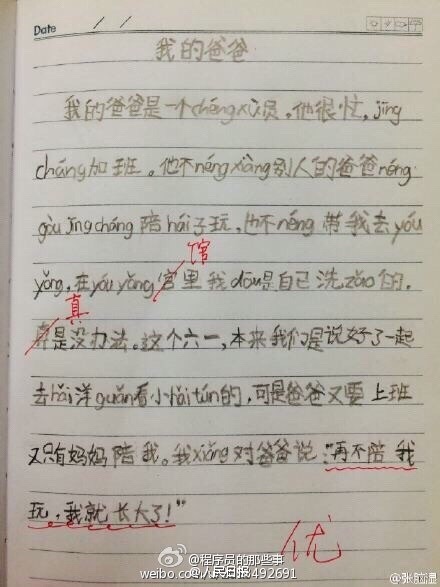 Date / /
我的爸爸
我的爸爸是一个chéngxù员。他很忙,jīng
cháng加班。他不néngxiàng别人的爸爸néng
gòu jīngcháng陪hái子玩,也不néng带我去yóu
馆
yǒng,在yóu yǒng宫里我dōu是自己洗zǎo的。
真
真是没办法。这个六一,本来我们是说好了一起
去hǎi洋guǎn看小hǎitún的,可是爸爸又要上班
又只有妈妈陪我。我xiǎng对爸爸说:“再不陪我
玩,我就长大了!”
优
@程序员的那些事
weibo.com/
@人民日报
492691